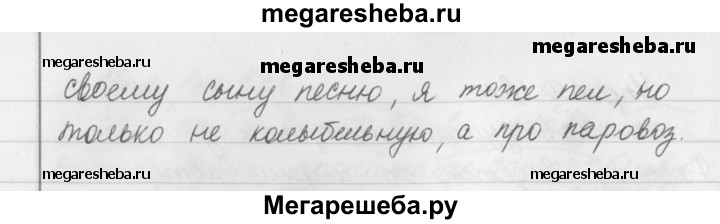 megaresheba.ru
megaresheba.ru
megaresheba.ru
megaresheba.ru
своему сыну песню, я тоже пел, но
только не колыбельную, а про паровоз.
megaresheba.ru
megaresheba.ru
Мегарешеба.ру